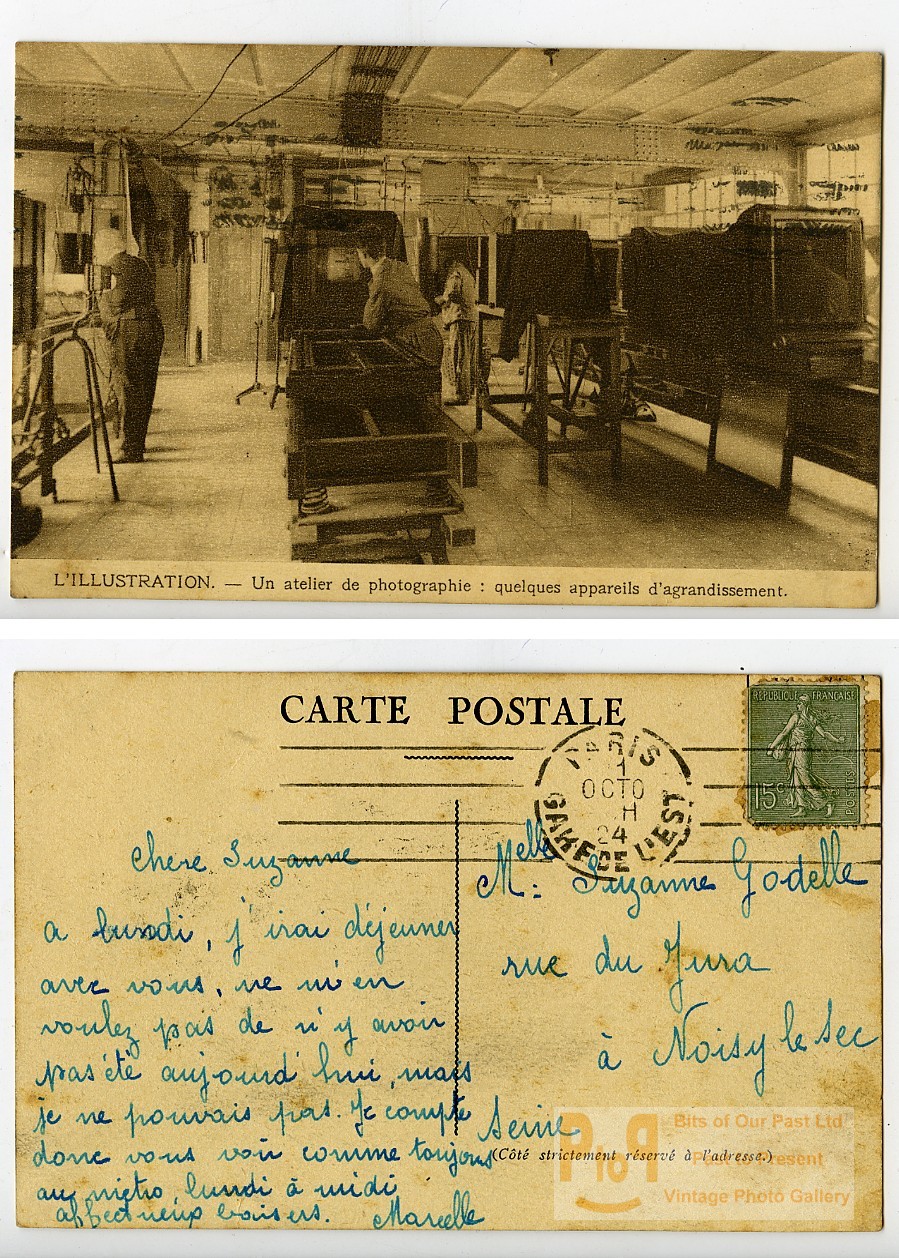 L'ILLUSTRATION. — Un atelier de photographie : quelques appareils d'agrandissement.
CARTE POSTALE
RÉPUBLIQUE FRANÇAISE
15c
POSTES
PARIS
1
OCTO
H
24
GARE DE L'EST
Chere Suzanne
a lundi, j'irai déjeuner
avec vous, ne m'en
voulez pas de n'y avoir
pas été aujourd'hui, mais
je ne pouvais pas. Je compte
donc vous voir comme toujours
au métro, lundi à midi
affectueux baisers. Marcelle
Melle
M: Suzanne Godelle
rue du Jura
à Noisy le Sec
Seine
(Côté strictement réservé à l'adresse.)
Bits of Our Past Ltd
Past to Present
Vintage Photo Gallery
PtoP